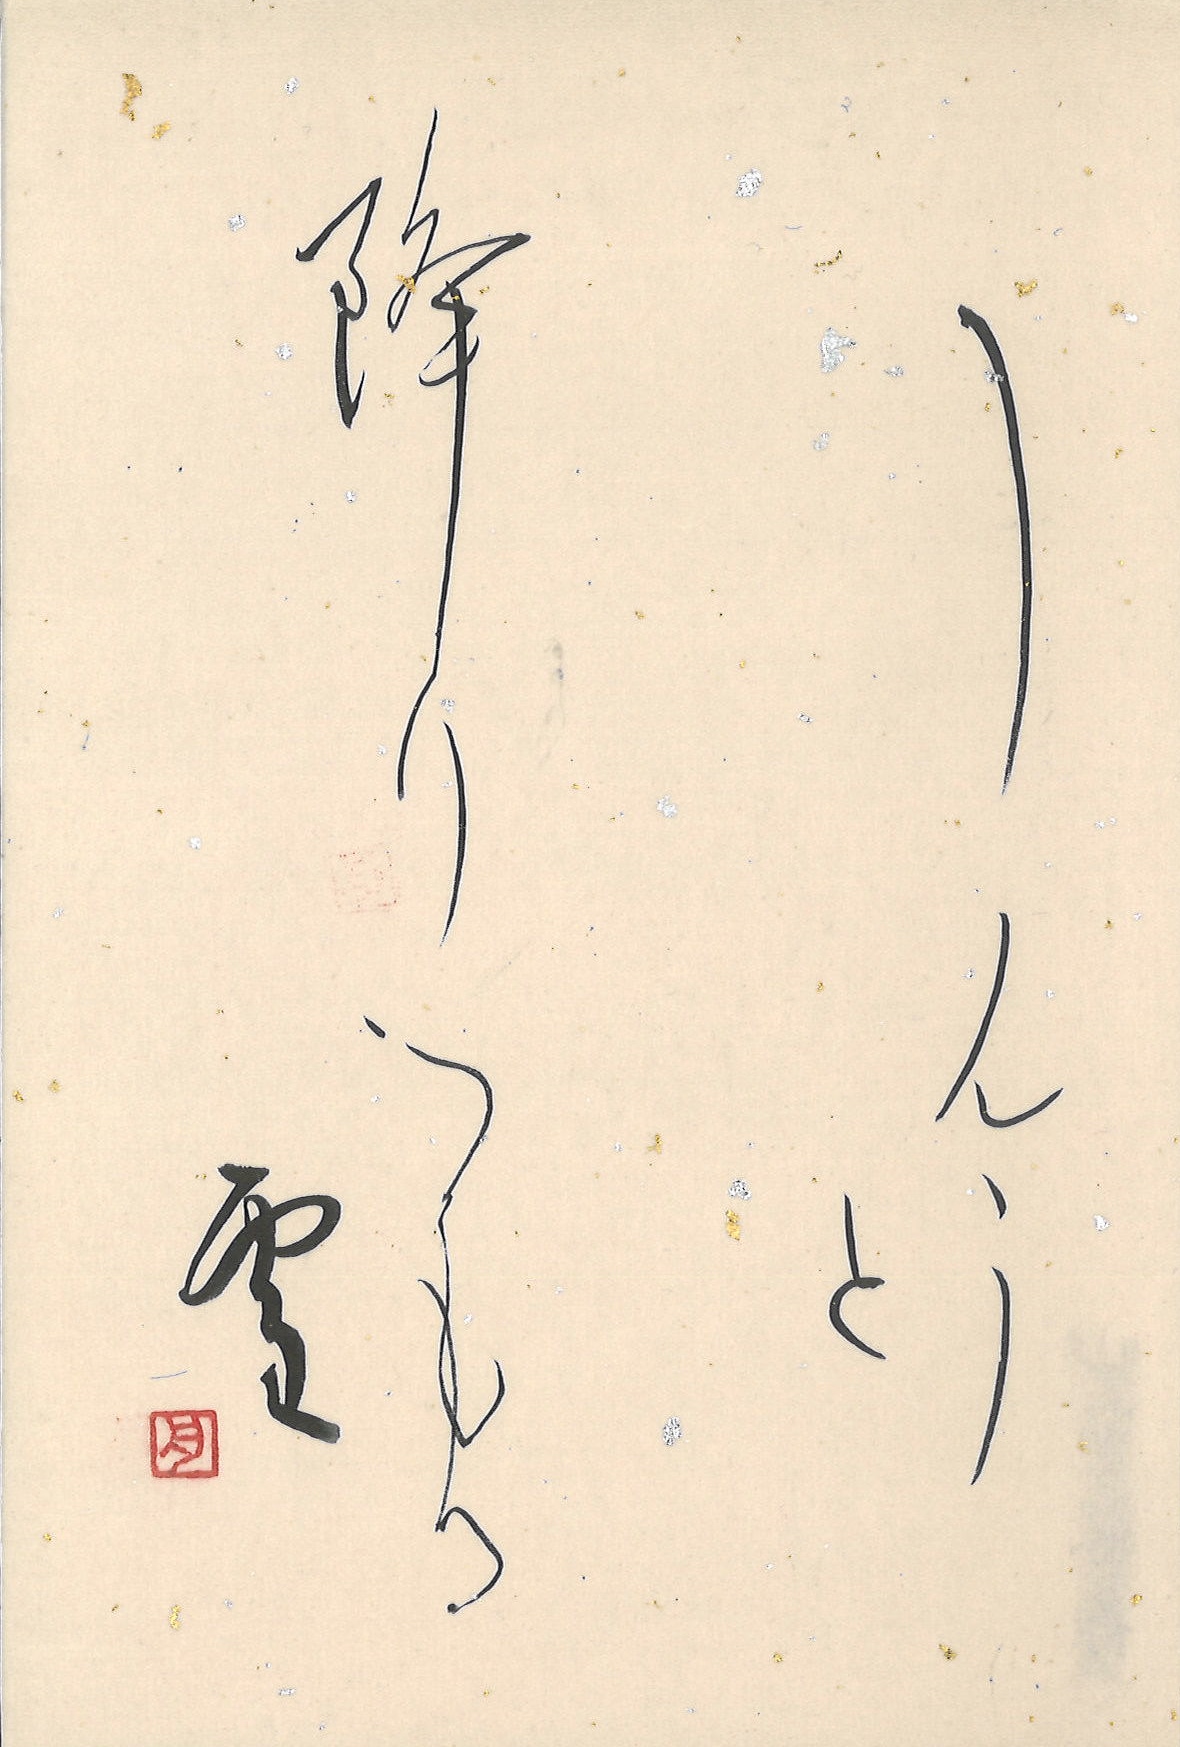 しん〱
と
降りつもる
雪
月